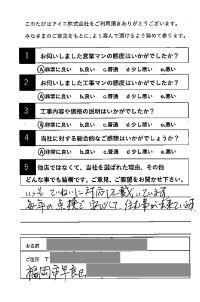 このたびはアイエ株式会社をご利用頂きありがとうございます。
みなさまのご意見をもとに、より喜んで頂けるよう努めて参ります。
1 お伺いしました営業マンの態度はいかがでしたか?
a.非常に良い b.良い c.普通 d.少し悪い e.悪い
2 お伺いしました工事マンの態度はいかがでしたか?
a.非常に良い b.良い c.普通 d.少し悪い e.悪い
3 工事内容や価格の説明はいかがでしたか?
a.非常に良い b.良い c.普通 d.少し悪い e.悪い
4 当社に対する総合的なご感想はいかがでしょうか?
a.非常に良い b.良い c.普通 d.少し悪い e.悪い
5 他店ではなくて、当社を選ばれた理由、その他
どんな事でも結構です。ご意見、ご要望をお聞かせ下さい。
いつもていねいに対応して戴いています
毎年の点検で安心して、住む事が出来ています
お名前
ご住所 〒
福岡市早良区